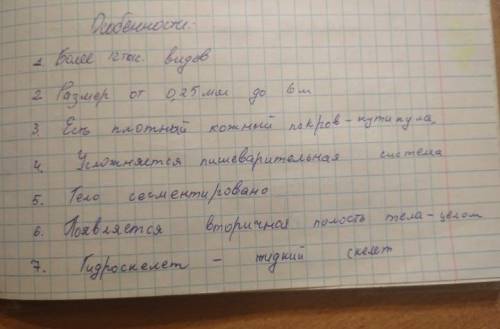 Особенности:
1. Более 12 тыс. видов
2. Размер от 0,25 мм до 6 м
3. Есть плотный кожный покров - кутикула,
4. Усложняется пищеварительная система
5. Тело сегментировано
6. Появляется вторичная полость тела - целом
7. Гидроскелет - жидкий скелет